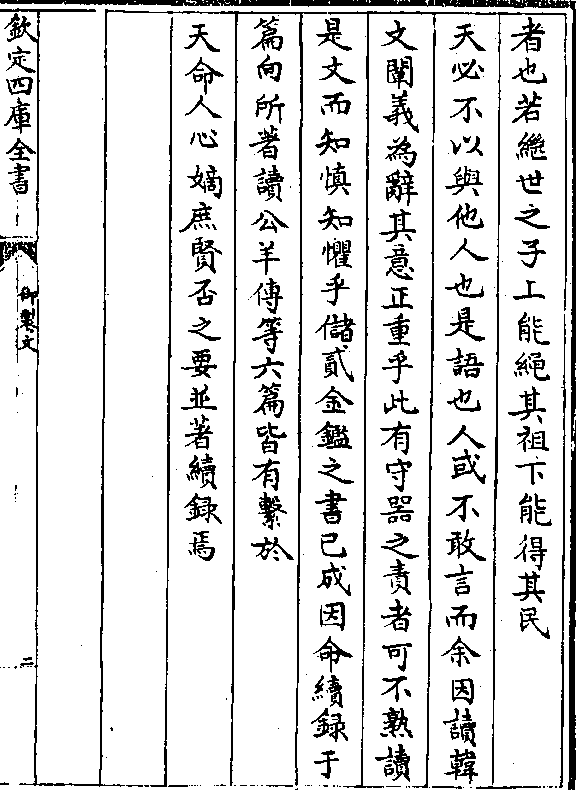 者也若繼世之子上能繩其祖下能得其民
天必不以與他人也是語也人或不敢言而余因讀韓
文闡義為辭其意正重乎此有守器之責者可不熟讀
是文而知慎知懼乎儲貳金鑑之書已成因命續錄于
篇向所著讀公羊傳等六篇皆有繫於
天命人心嫡庶賢否之要並著續録焉
欽定四庫全書
御製文
二